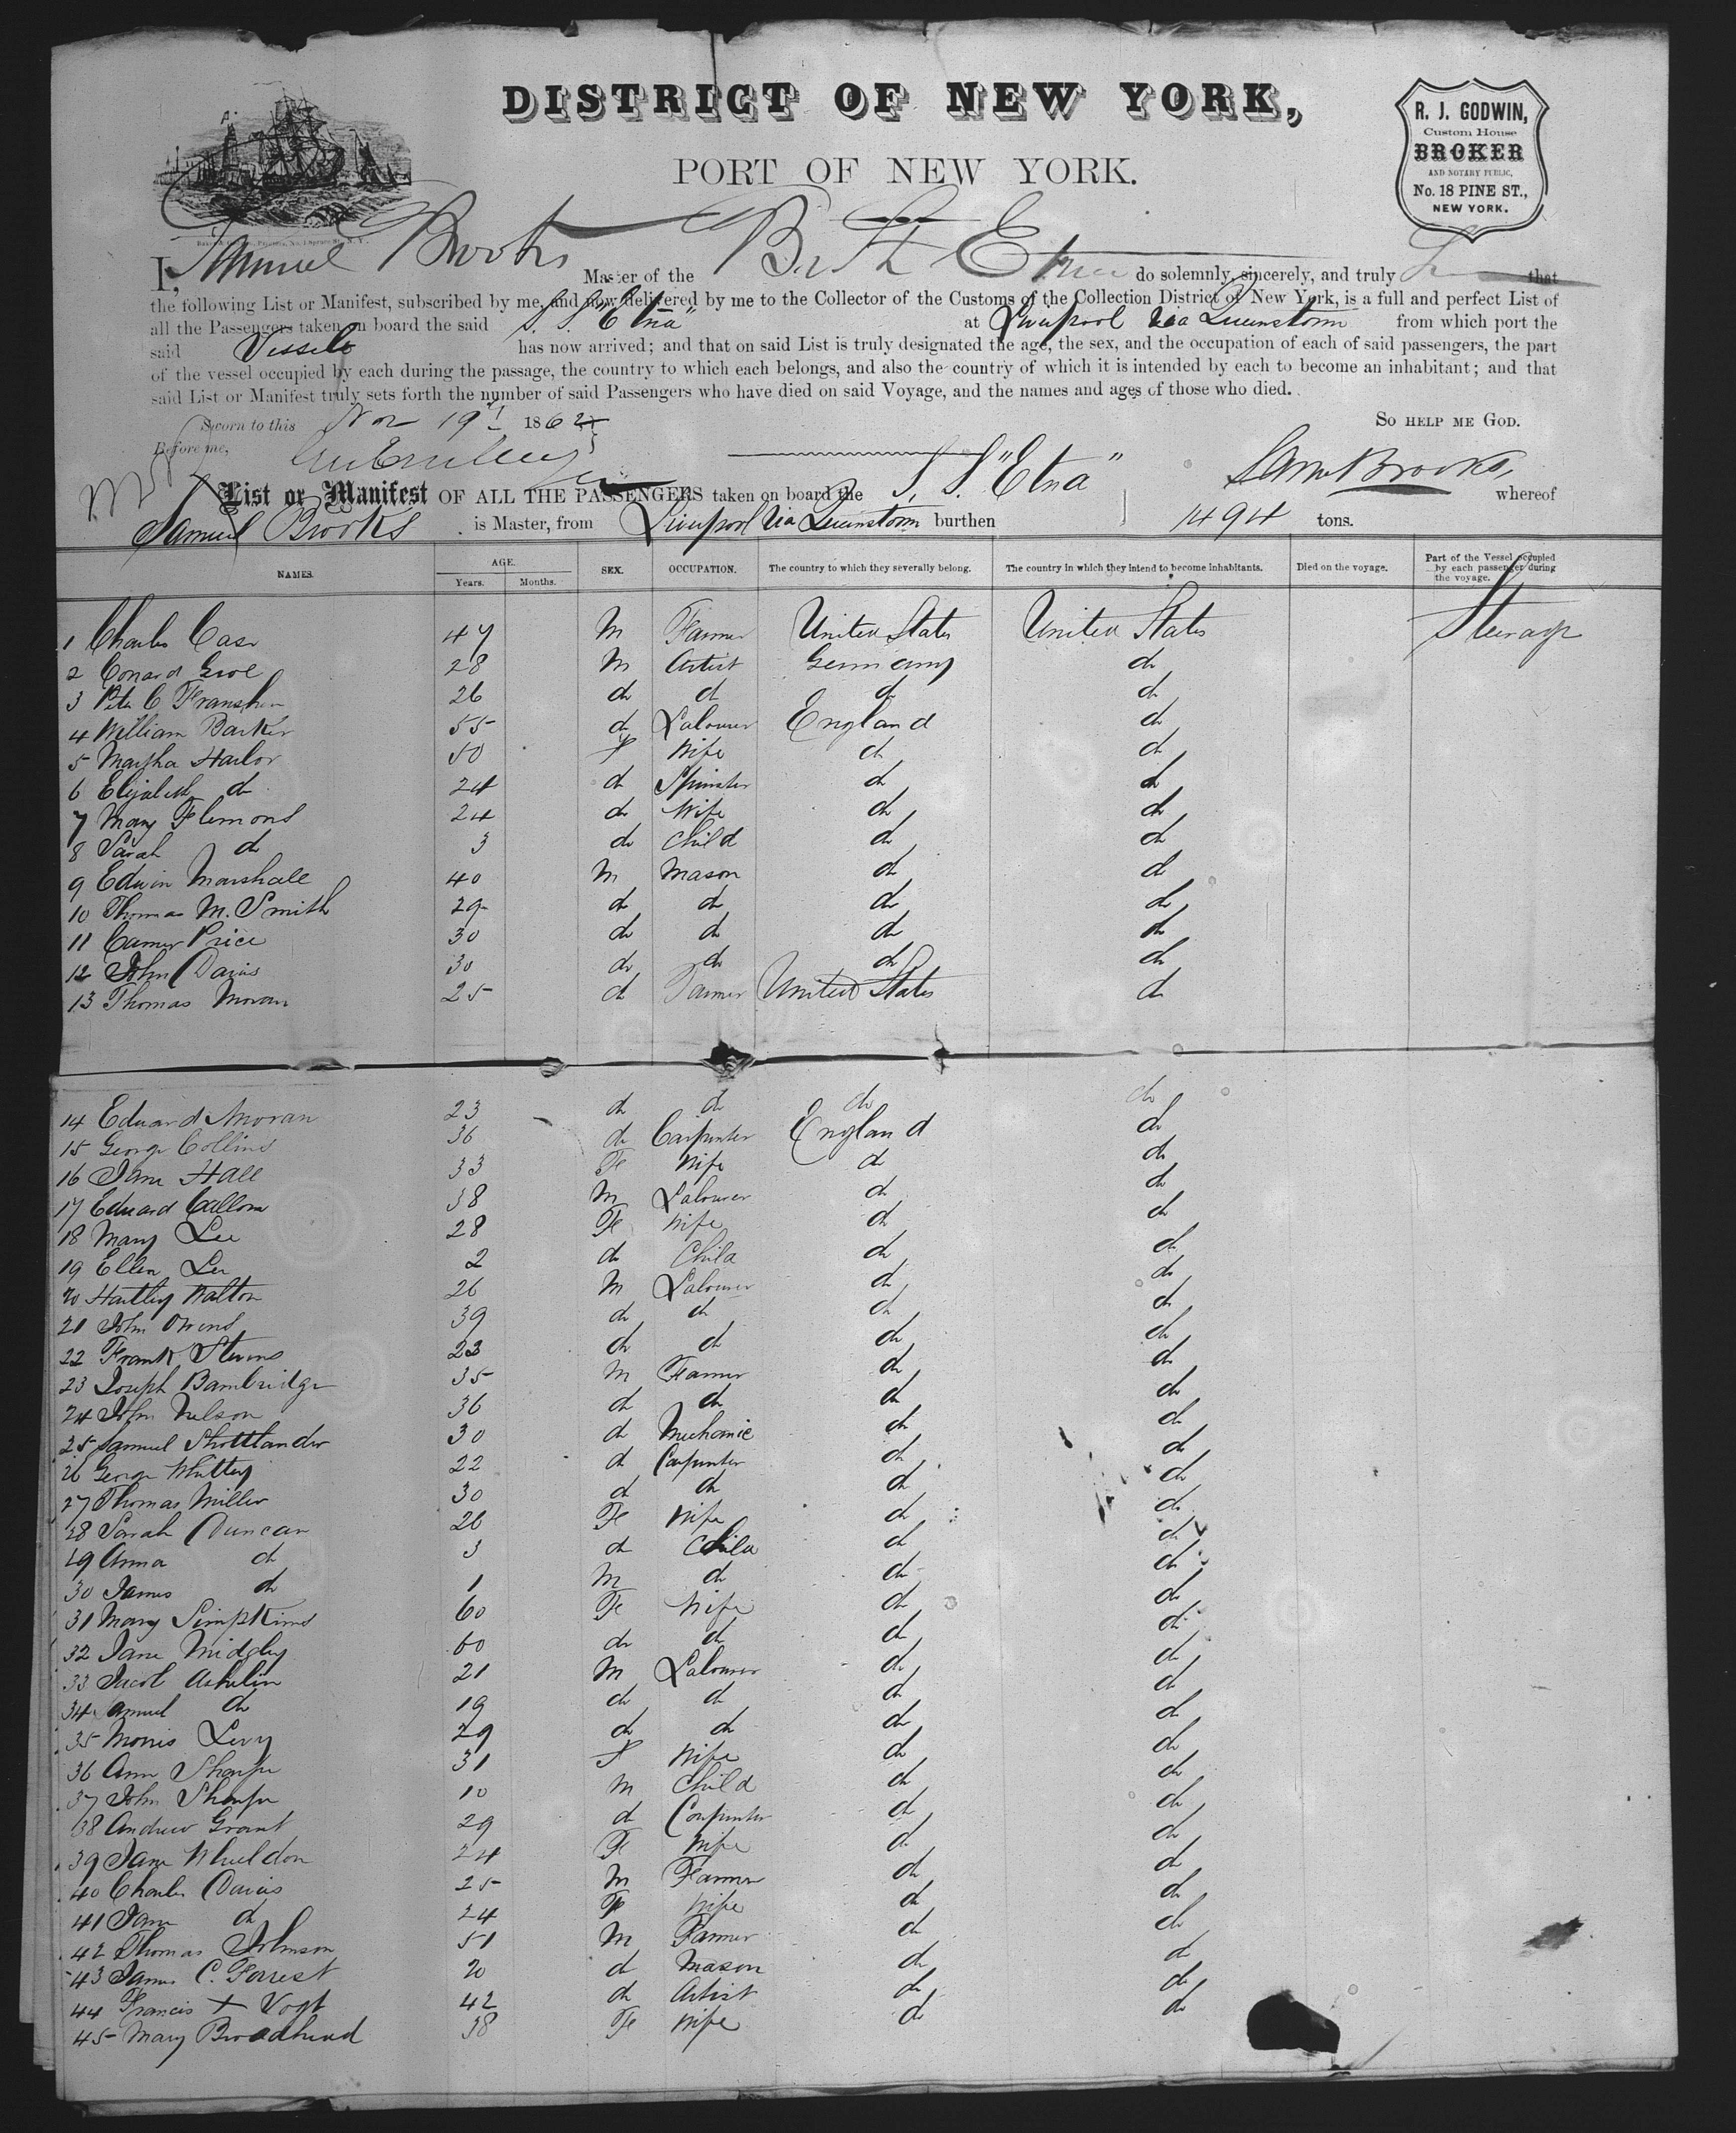 DISTRICT OF NEW YORK,
PORT OF NEW YORK.
R. J. GODWIN,
Custom House
BROKER
AND NOTARY PUBLIC,
No. 18 PINE ST.,
NEW YORK.
I, Samuel Brooks Master of the Etna do solemnly, sincerely, and truly that
the following List or Manifest, subscribed by me, and now delivered by me to the Collector of the Customs of the Collection District of New York, is a full and perfect List of
all the Passengers taken on board the said S. S. "Etna" at Liverpool via Queenstown from which port the
said Vessel has now arrived; and that on said List is truly designated the age, the sex, and the occupation of each of said passengers, the part
of the vessel occupied by each during the passage, the country to which each belongs, and also the country of which it is intended by each to become an inhabitant; and that
said List or Manifest truly sets forth the number of said Passengers who have died on said Voyage, and the names and ages of those who died.
Sworn to this Nov 19 1862 SO HELP ME GOD.
Before me,
Saml Brooks
List or Manifest OF ALL THE PASSENGERS taken on board the S. S. "Etna" whereof
Samuel Brooks is Master, from Liverpool via Queenstown burthen 1494 tons.
NAMES. AGE. Years. Months. SEX. OCCUPATION. The country to which they severally belong. The country in which they intend to become inhabitants. Died on the voyage. Part of the Vessel occupied by each passenger during the voyage.
1 Charles Case 47 M Farmer United States United States Steerage
2 Conard 28 M Artist Germany do
3 Peter C 26 do do do do
4 William Barker 55 do Labourer England do
5 Martha Harlor 50 F Wife do do
6 Elizabeth do 24 do Spinster do do
7 Mary Flemons 24 do Wife do do
8 Sarah do 3 do Child do do
9 Edwin Marshall 40 M Mason do do
10 Thomas M. Smith 29 do do do do
11 Price 30 do do do do
12 John Davis 30 do do do do
13 Thomas Moran 25 do Farmer United States do
14 Edward Moran 23 do do do do
15 George Collins 36 do Carpenter England do
16 Jane Hall 33 Fe Wife do do
17 Edward 38 M Labourer do do
18 Mary Lee 28 Fe Wife do do
19 Ellen Lee 2 do Child do do
20 Hartley Walton 26 M Labourer do do
21 John Owens 39 do do do do
22 Frank Stevens 22 do do do do
23 Joseph Bambridge 35 M Farmer do do
24 John Nelson 36 do do do do
25 Samuel Shottlander 30 do Mechanic do do
26 George Whittey 22 do Carpenter do do
27 Thomas Miller 30 do do do do
28 Sarah Duncan 26 Fe Wife do do
29 Anna do 3 do Child do do
30 James do 1 M do do do
31 Mary Simpkins 60 Fe Wife do do
32 Jane Midgley 60 do do do do
33 Jacob 21 M Labourer do do
34 Samuel do 19 do do do do
35 Morris Levy 29 do do do do
36 Ann Sharpe 31 F Wife do do
37 John Sharpe 10 M Child do do
38 Andrew Grant 29 do Carpenter do do
39 Jane Wheeldon 24 Fe Wife do do
40 Charles Davis 25 M Farmer do do
41 Jane do 24 Fe Wife do do
42 Thomas Johnson 51 M Farmer do do
43 James C. Forrest 20 do Mason do do
44 Francis X Vogt 42 do Artist do do
45 Mary Broadhead 38 Fe Wife do do